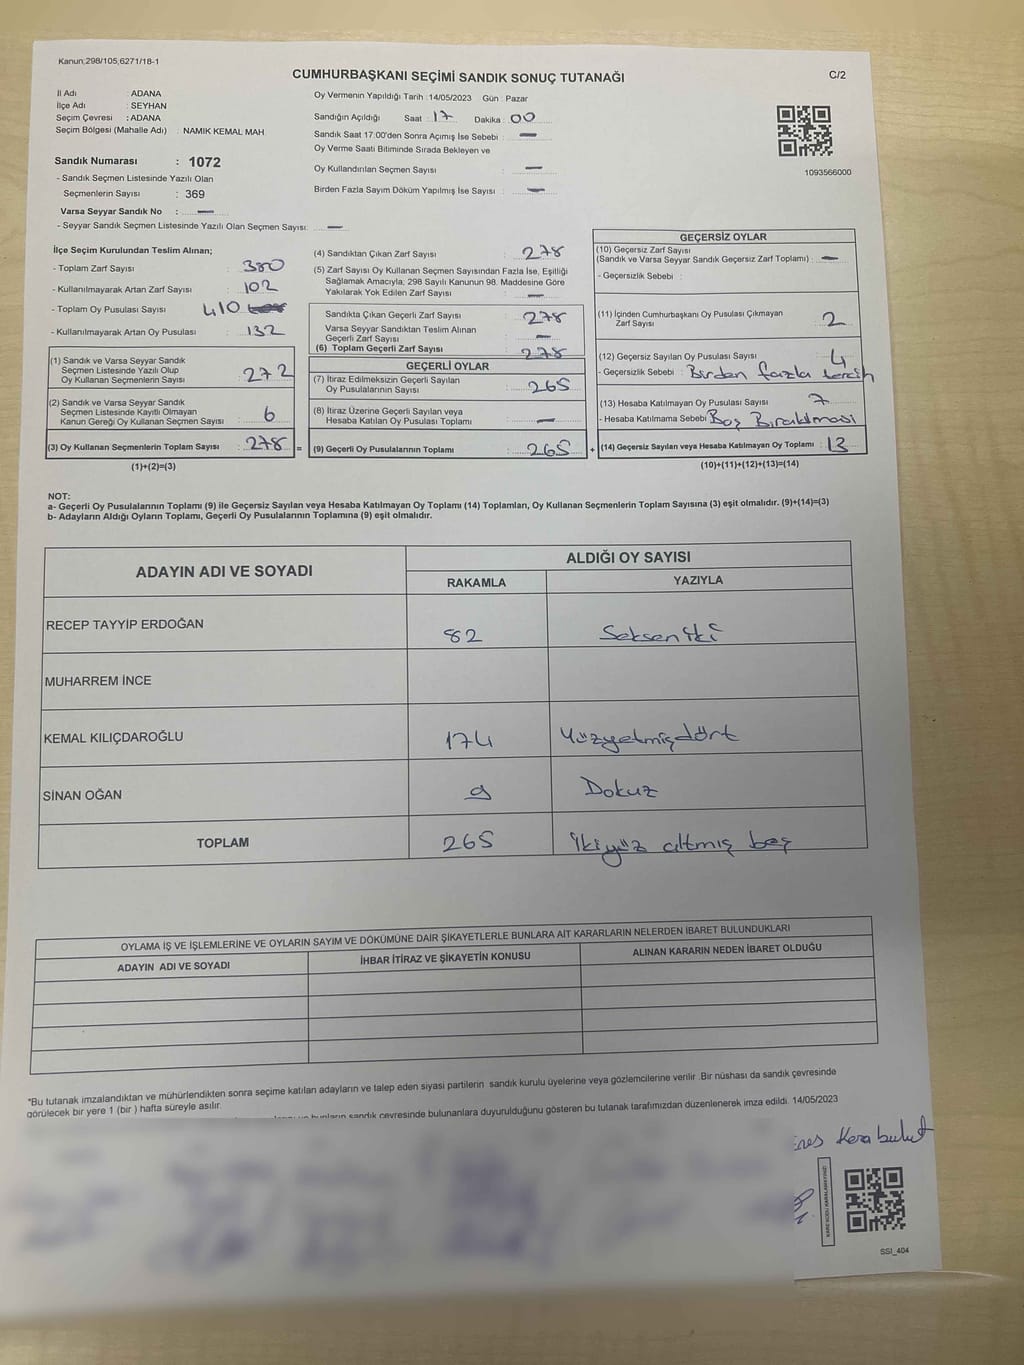 Kanun;298/105,6271/18-1
CUMHURBAŞKANI SEÇİMİ SANDIK SONUÇ TUTANAĞI
C/2
İl Adı : ADANA
İlçe Adı : SEYHAN
Seçim Çevresi : ADANA
Seçim Bölgesi (Mahalle Adı) : NAMIK KEMAL MAH
Oy Vermenin Yapıldığı Tarih :14/05/2023 Gün : Pazar
Sandığın Açıldığı Saat : 17 Dakika : 00
Sandık Saat 17:00'den Sonra Açımış İse Sebebi : —
Oy Verme Saati Bitiminde Sırada Bekleyen ve
Oy Kullandırılan Seçmen Sayısı : —
Birden Fazla Sayım Döküm Yapılmış İse Sayısı : —
1093566000
Sandık Numarası : 1072
- Sandık Seçmen Listesinde Yazılı Olan
Seçmenlerin Sayısı : 369
Varsa Seyyar Sandık No : —
- Seyyar Sandık Seçmen Listesinde Yazılı Olan Seçmen Sayısı: —
İlçe Seçim Kurulundan Teslim Alınan;
- Toplam Zarf Sayısı : 380
- Kullanılmayarak Artan Zarf Sayısı : 102
- Toplam Oy Pusulası Sayısı : 410
- Kullanılmayarak Artan Oy Pusulası : 132
(1) Sandık ve Varsa Seyyar Sandık
Seçmen Listesinde Yazılı Olup
Oy Kullanan Seçmenlerin Sayısı : 272
(2) Sandık ve Varsa Seyyar Sandık
Seçmen Listesinde Kayıtlı Olmayan
Kanun Gereği Oy Kullanan Seçmen Sayısı : 6
(3) Oy Kullanan Seçmenlerin Toplam Sayısı : 278 =
(1)+(2)=(3)
(4) Sandıktan Çıkan Zarf Sayısı : 278
(5) Zarf Sayısı Oy Kullanan Seçmen Sayısından Fazla İse, Eşitliği
Sağlamak Amacıyla; 298 Sayılı Kanunun 98. Maddesine Göre
Yakılarak Yok Edilen Zarf Sayısı : —
Sandıkta Çıkan Geçerli Zarf Sayısı : 278
Varsa Seyyar Sandıktan Teslim Alınan
Geçerli Zarf Sayısı : —
(6) Toplam Geçerli Zarf Sayısı : 278
GEÇERLİ OYLAR
(7) İtiraz Edilmeksizin Geçerli Sayılan
Oy Pusulalarının Sayısı : 265
(8) İtiraz Üzerine Geçerli Sayılan veya
Hesaba Katılan Oy Pusulası Toplamı : —
(9) Geçerli Oy Pusulalarının Toplamı : 265 +
GEÇERSİZ OYLAR
(10) Geçersiz Zarf Sayısı
(Sandık ve Varsa Seyyar Sandık Geçersiz Zarf Toplamı) : —
- Geçersizlik Sebebi :
(11) İçinden Cumhurbaşkanı Oy Pusulası Çıkmayan
Zarf Sayısı : 2
(12) Geçersiz Sayılan Oy Pusulası Sayısı : 4
- Geçersizlik Sebebi : Birden fazla tercih
(13) Hesaba Katılmayan Oy Pusulası Sayısı : 7
- Hesaba Katılmama Sebebi : Boş Bırakılması
(14) Geçersiz Sayılan veya Hesaba Katılmayan Oy Toplamı : 13
(10)+(11)+(12)+(13)=(14)
NOT:
a- Geçerli Oy Pusulalarının Toplamı (9) ile Geçersiz Sayılan veya Hesaba Katılmayan Oy Toplamı (14) Toplamları, Oy Kullanan Seçmenlerin Toplam Sayısına (3) eşit olmalıdır. (9)+(14)=(3)
b- Adayların Aldığı Oyların Toplamı, Geçerli Oy Pusulalarının Toplamına (9) eşit olmalıdır.
ADAYIN ADI VE SOYADI
ALDIĞI OY SAYISI
RAKAMLA YAZIYLA
RECEP TAYYİP ERDOĞAN 82 Seksen iki
MUHARREM İNCE
KEMAL KILIÇDAROĞLU 174 Yüzyetmişdört
SİNAN OĞAN 9 Dokuz
TOPLAM 265 ikiyüz altmış beş
OYLAMA İŞ VE İŞLEMLERİNE VE OYLARIN SAYIM VE DÖKÜMÜNE DAİR ŞİKAYETLERLE BUNLARA AİT KARARLARIN NELERDEN İBARET BULUNDUKLARI
ADAYIN ADI VE SOYADI İHBAR İTİRAZ VE ŞİKAYETİN KONUSU ALINAN KARARIN NEDEN İBARET OLDUĞU
*Bu tutanak imzalandıktan ve mühürlendikten sonra seçime katılan adayların ve talep eden siyasi partilerin sandık kurulu üyelerine veya gözlemcilerine verilir .Bir nüshası da sandık çevresinde
görülecek bir yere 1 (bir ) hafta süreyle asılır.
bunların sandık çevresinde bulunanlara duyurulduğunu gösteren bu tutanak tarafımızdan düzenlenerek imza edildi. 14/05/2023
Karabulut
SSI_404